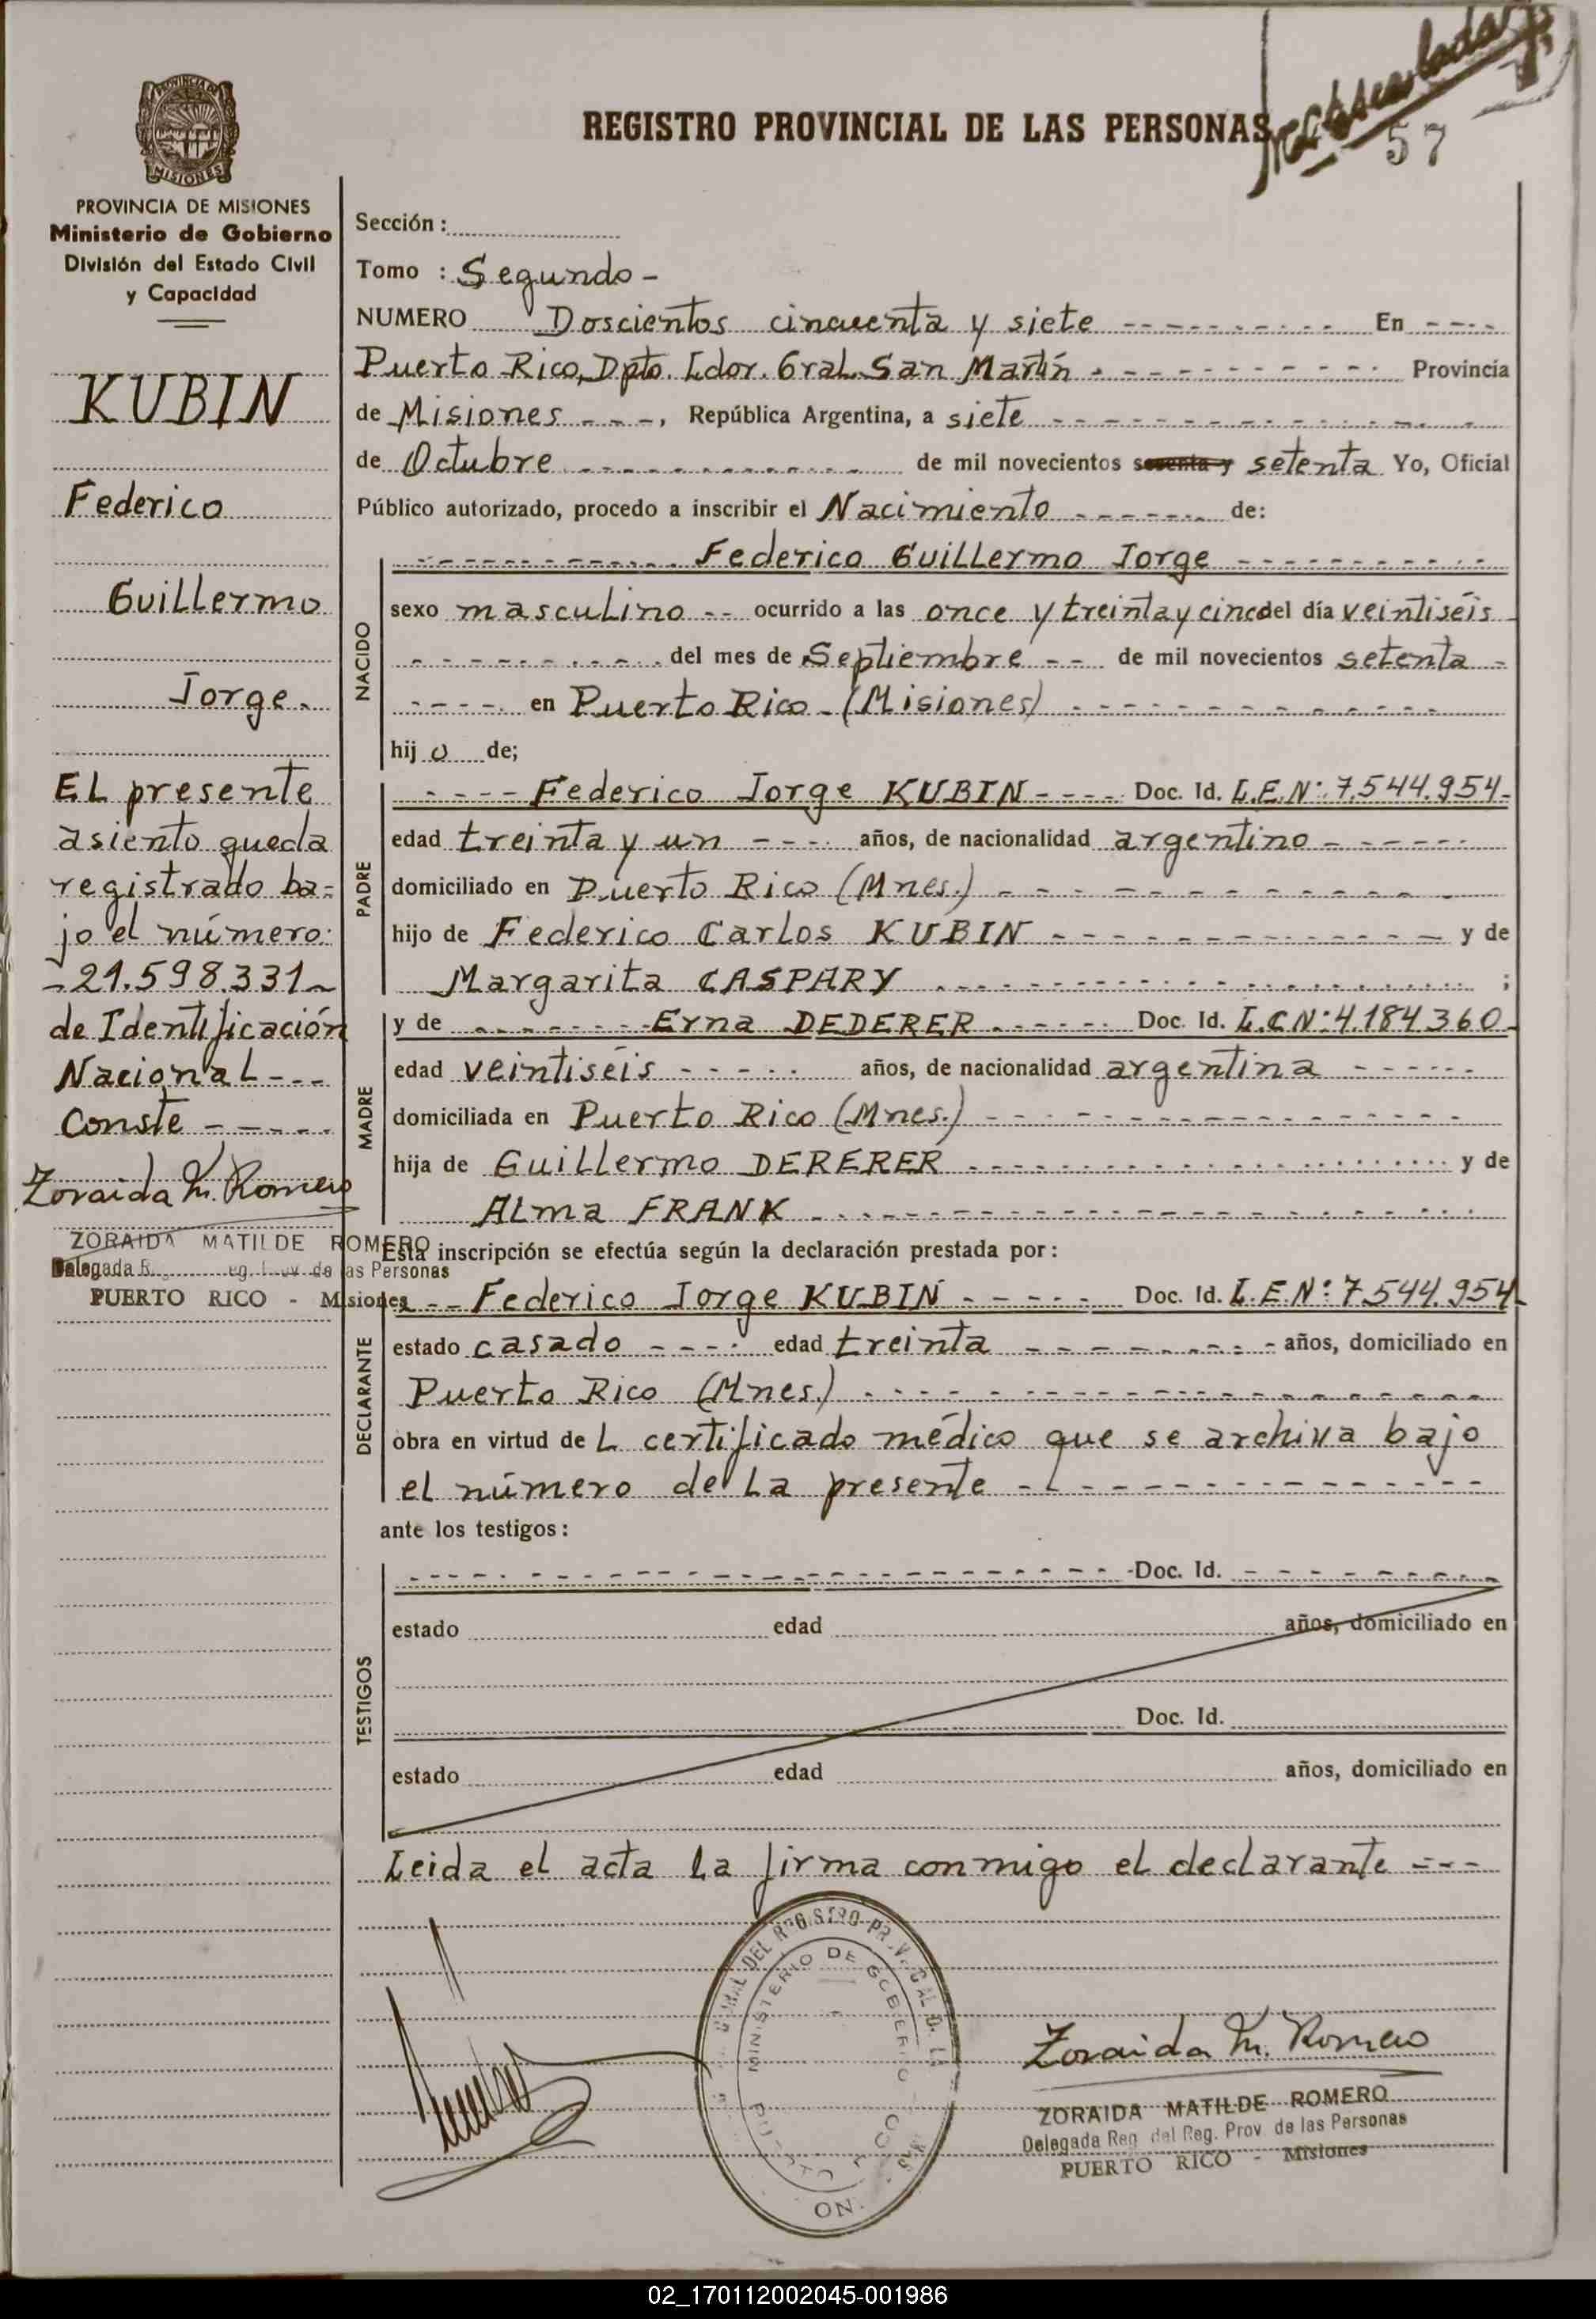 REGISTRO PROVINCIAL DE LAS PERSONAS
57
PROVINCIA DE MISIONES
PROVINCIA DE MISIONES
Ministerio de Gobierno
División del Estado Civil
y Capacidad
KUBIN
Federico
Guillermo
Jorge.
EL presente
asiento queda
registrado ba=
jo el número:
-21.598.331-
de Identificación
Nacional---
Conste-----
Zoraida M. Romero
ZORAIDA MATILDE ROMERO
Delegada R as Personas
PUERTO RICO - Misiones
Sección:
Tomo : Segundo-
NUMERO Doscientos cincuenta y siete ---------- En ----
Puerto Rico, Dpto. Ldor. Gral. San Martín ----------- Provincia
de Misiones ---, República Argentina, a siete
de Octubre ------------ de mil novecientos sesenta y setenta Yo, Oficial
Público autorizado, procedo a inscribir el Nacimiento ------ de:
NACIDO
------------ Federico Guillermo Jorge ----------
sexo masculino -- ocurrido a las once y treinta y cinco del día veintiséis
---------- del mes de Septiembre -- de mil novecientos setenta -
----- en Puerto Rico - (Misiones) ------------
hijo de;
PADRE
---- Federico Jorge KUBIN ---- Doc. Id. L.E.N°:7.544.954-
edad treinta y un ---- años, de nacionalidad argentino ------
domiciliado en Puerto Rico (Mnes.) -----------
hijo de Federico Carlos KUBIN -------------- y de
Margarita CASPARY ------------------ ;
MADRE
y de -------- Erna DEDERER ------ Doc. Id. L.C N°:4.184360-
edad veintiséis ------ años, de nacionalidad argentina ------
domiciliada en Puerto Rico (Mnes.) -----------------
hija de Guillermo DERERER -------------------- y de
Alma FRANK ----------------------
Esta inscripción se efectúa según la declaración prestada por:
DECLARANTE
-- Federico Jorge KUBIN ----- Doc. Id. L.E.N°:7.544.954
estado casado ---- edad treinta ---------- años, domiciliado en
Puerto Rico (Mnes.) --------------------
obra en virtud de L certificado médico que se archiva bajo
el número de La presente ----------------
ante los testigos:
TESTIGOS
---------------------------- Doc. Id. ---------
estado edad años, domiciliado en
Doc. Id.
estado edad años, domiciliado en
Leida el acta la firma conmigo el declarante ---
MINISTERIO DE GOBIERNO
Zoraida M. Romero
ZORAIDA MATILDE ROMERO
Delegada Reg. del Reg. Prov. de las Personas
PUERTO RICO - Misiones
02_170112002045-001986